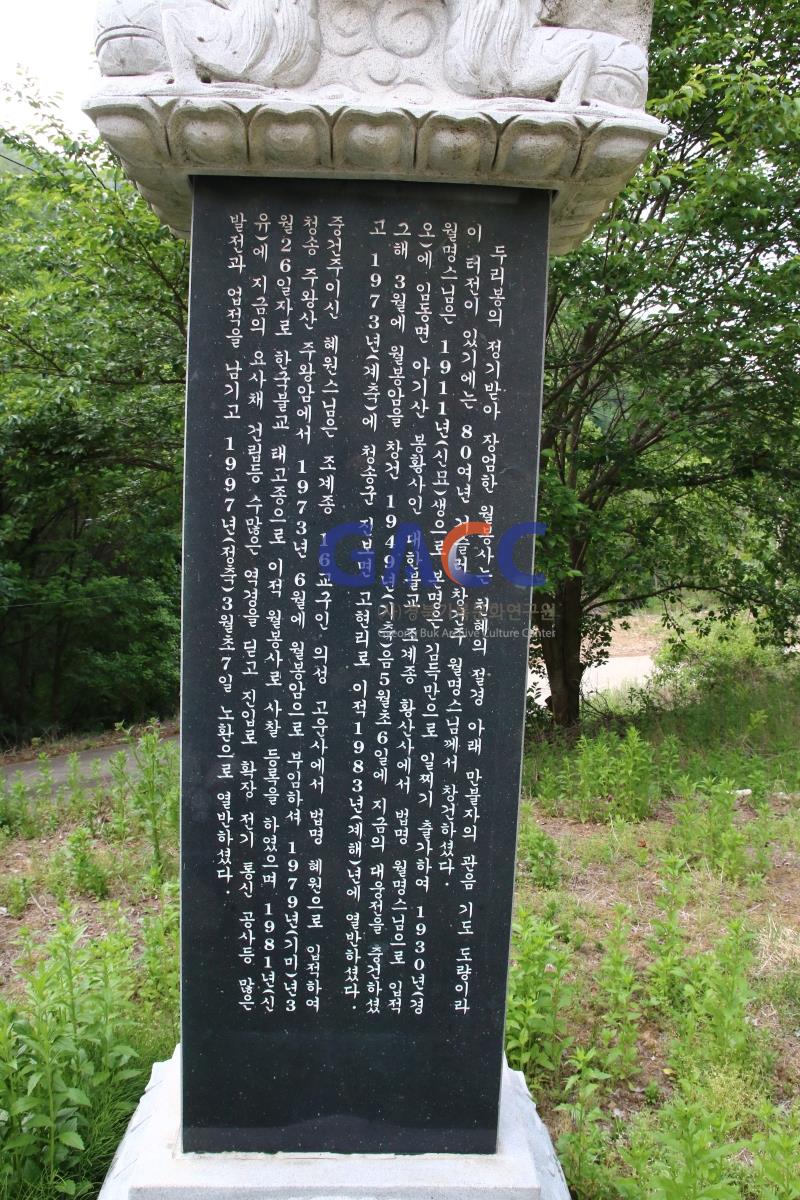 두리봉의 정기받아 장엄한 월봉사는 천혜의 절경 아래 만불자의 관음 기도 도량이라
이 터전이 있기에는 80여년 거슬러 창건주 월명스님께서 창건하셨다.
월명스님은 1911년(신묘)생으로 본명은 김득만으로 일찌기 출가하여 1930년(경
오)에 임동면 아기산 봉황사인 대한불교 조계종 황산사에서 법명 월명스님으로 입적
그해 3월에 월봉암을 창건 1949년(기축)음5월초6일에 지금의 대웅전을 중건하셨
고 1973년(계축)에 청송군 진보면 고현리로 이적1983년(계해)년에 열반하셨다.
중건주이신 혜원스님은 조계종 16교구인 의성 고운사에서 법명 혜원으로 입적하여
청송 주왕산 주왕암에서 1973년 6월에 월봉암으로 부임하셔 1979년(기미)년3
월26일자로 한국불교 태고종으로 이적 월봉사로 사찰 등록을 하였으며 1981년(신
유)에 지금의 요사채 건립등 수많은 역경을 딛고 진입로 확장 전기 통신 공사등 많은
발전과 업적을 남기고 1997년(정축)3월초7일 노환으로 열반하셨다.
GACC
(사)경북기록문화연구원
Gyeong Buk Archive Culture Center